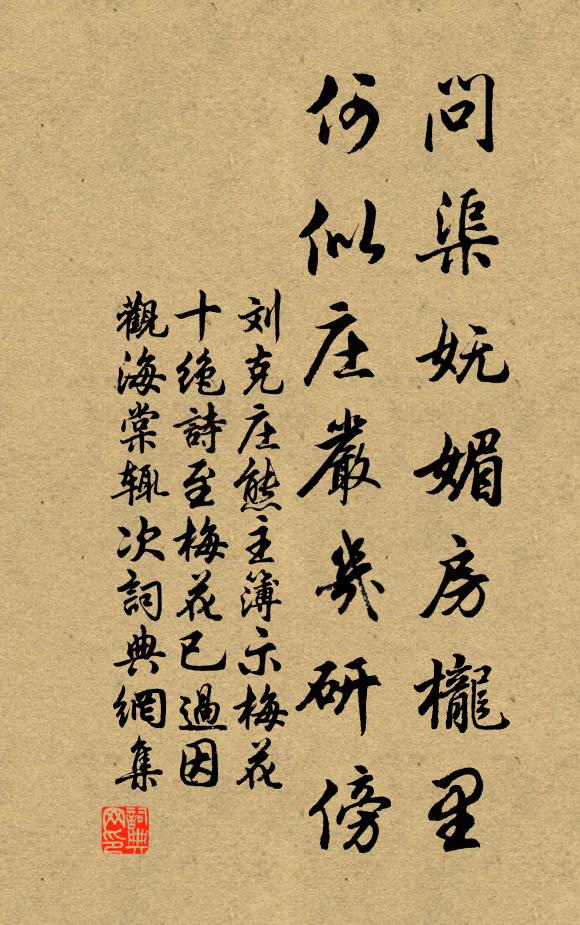 問渠妩媚房櫳里
何似庄嚴幾研傍
刘克庄熊主簿示梅花
十绝詩至梅花已過因
觀海棠辄次詞典網集
詞典網印